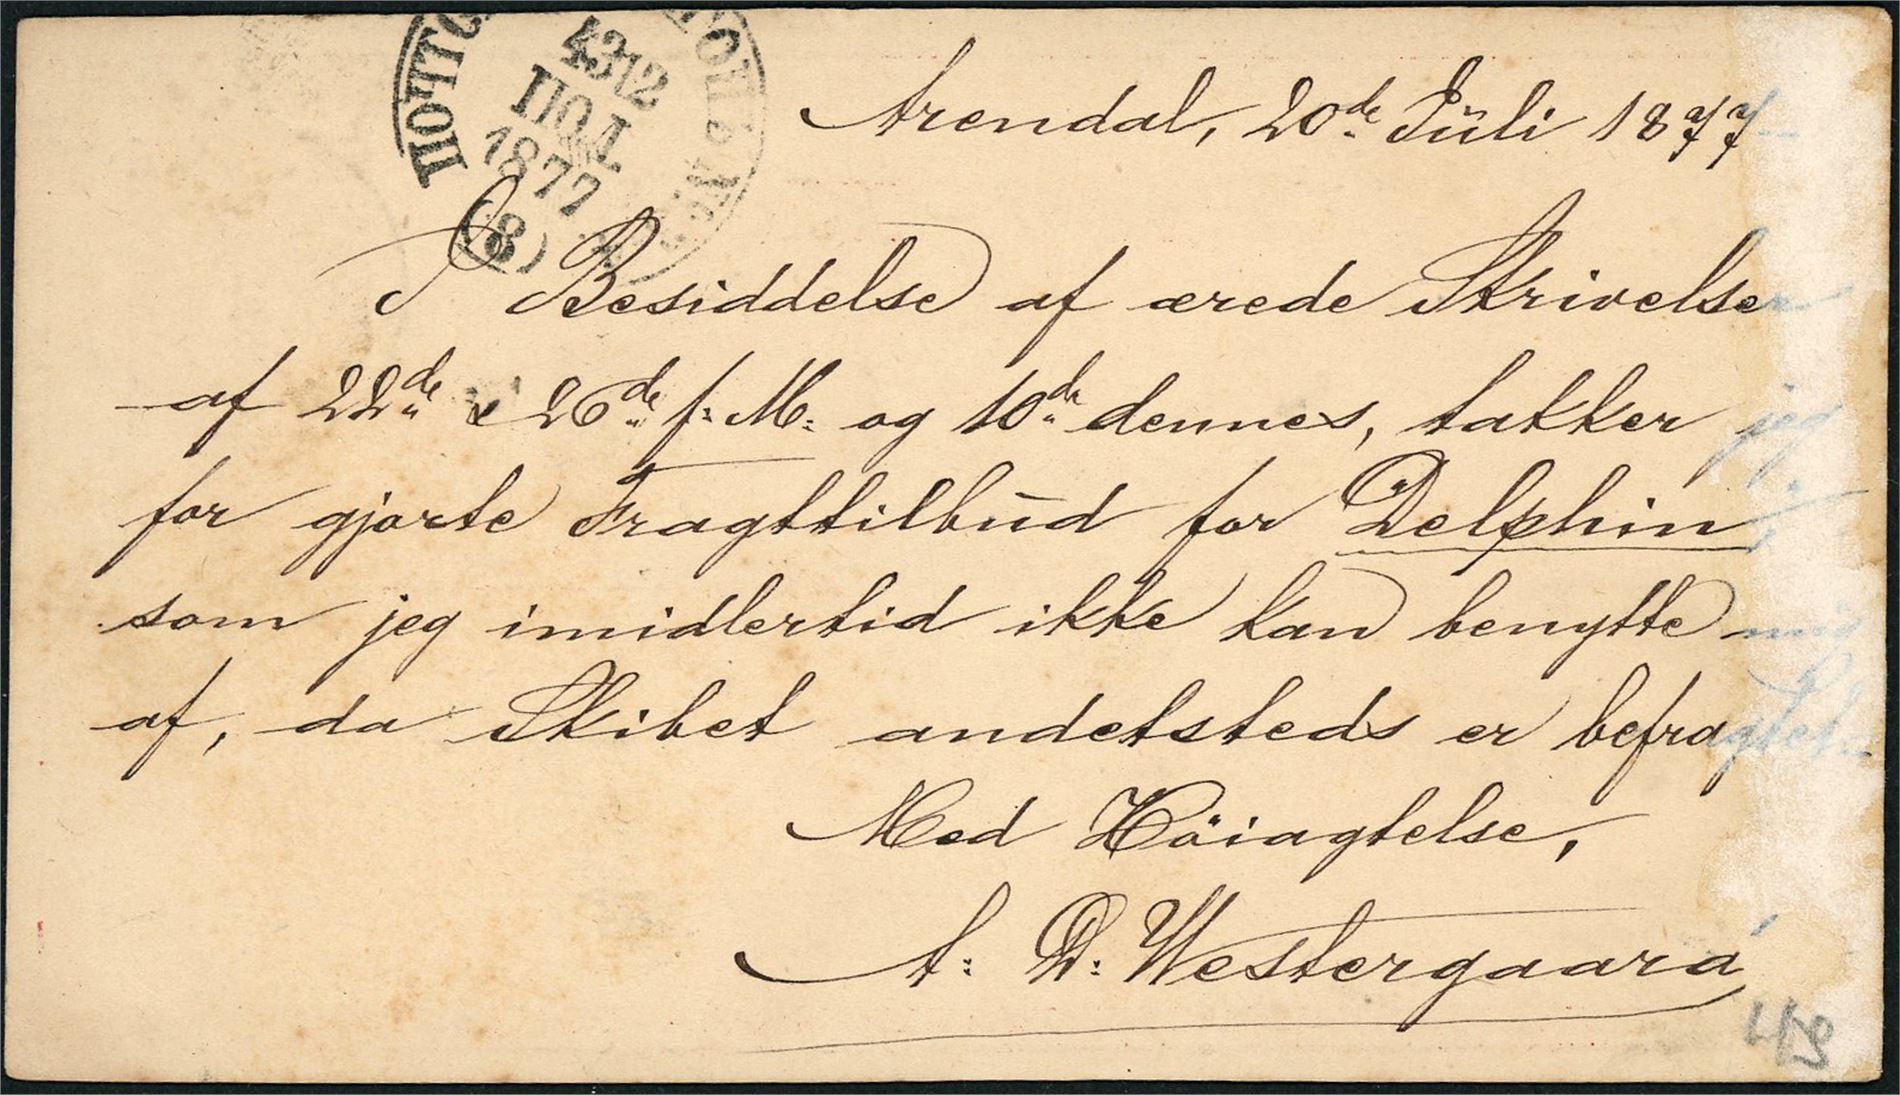 Arendal, 20de Jŭli 1877
I Besiddelse af ærede Skrivelser
af 22de & 26de f: M: og 10de dennes, takker jeg
for gjorte Fragttilbŭd for Delphin,
som jeg imidlertid ikke kan benytte mig
af, da Skibet andetsteds er befragtet.
Med Höiagtelse,
A: D: Westergaard
1877
(8)